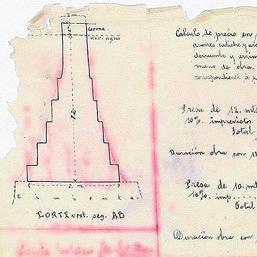 Corona
Niv. agua
12
6
2 m
6
Cimiento
CORTE vert. seg. AB
Calculo de precio en
mano de obra.
correspondiente a
Presa de 12. mt
10%. imprevistos
Total
Duración obra con 1
Presa de 10. mt
10%. imp.....
Total
Duración obra con